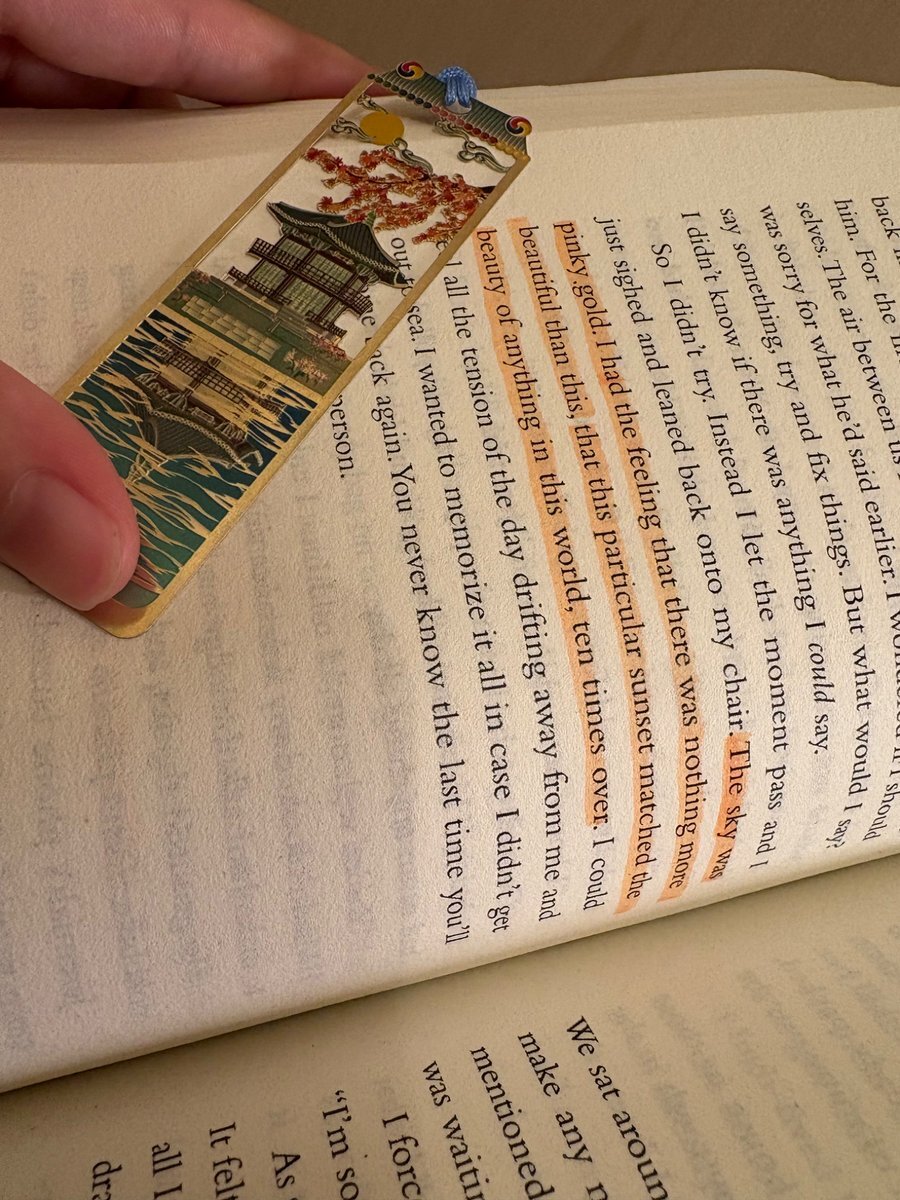 back
him. For the
selves. The air between us
was sorry for what he'd said earlier. I wondered if I should
say something, try and fix things. But what would I say?
I didn't know if there was anything I could say.
So I didn't try. Instead I let the moment pass and I
just sighed and leaned back onto my chair. The sky was
pinky gold. I had the feeling that there was nothing more
beautiful than this, that this particular sunset matched the
beauty of anything in this world, ten times over. I could
all the tension of the day drifting away from me and
out sea. I wanted to memorize it all in case I didn't get
back again. You never know the last time you'll
person.
We sat aroun
make any
mentioned
was waitin
I forc
“I'm so
As
It felt
all I
dra